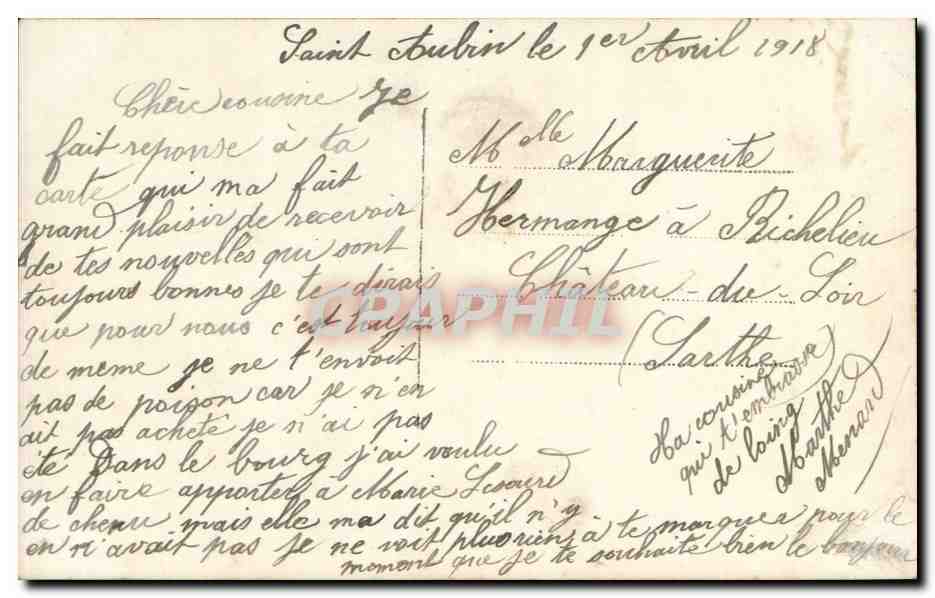 Saint Aubin le 1er Avril 1918
Chère cousine Je
fait reponse à ta
carte qui ma fait
grand plaisir de recevoir
de tes nouvelles qui sont
toujours bonnes je te dirais
que pour nous c'est toujour
de meme je ne t'envoit
pas de poison car je n'en
ait pas acheté je n'ai pas
été Dans le bourg j'ai voulu
en faire apporter à Marie
de chenu mais elle ma dit qu'il n'y
en n'avait pas je ne voit plus rien à te marquer pour le
moment que je te souhaite bien le bonjour
Mlle Marguerite
Hermange à Richelieu
Château-du-Loir
(Sarthe)
Ta cousine
qui t'embrasse
de loing
Marthe
Menard
CPAPHIL